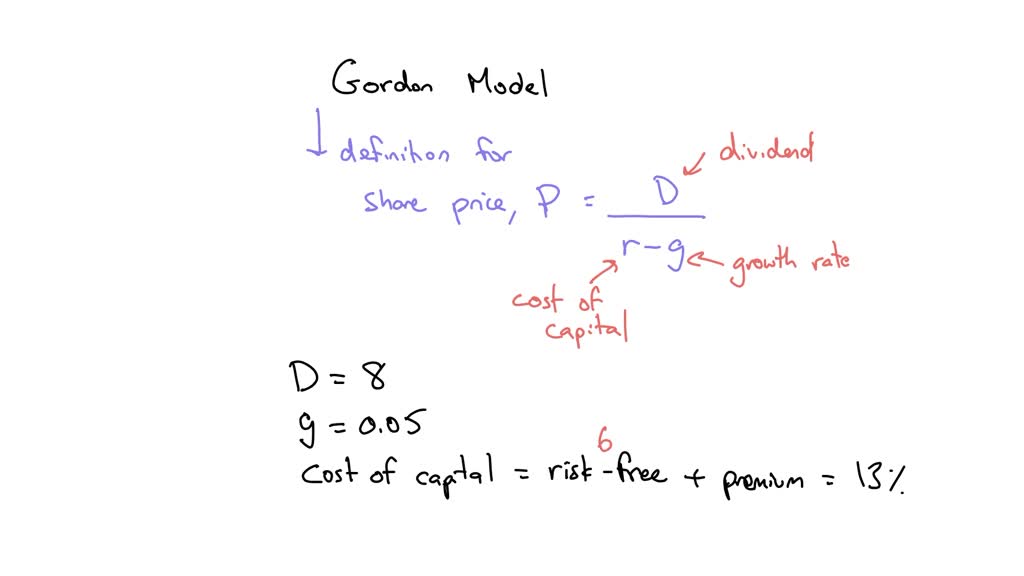 Gordon Model
definition for
dividend
share price, P = D
r - g
growth rate
cost of
capital
D = 8
g = 0.05
6
cost of captal = risk-free + premium = 13%